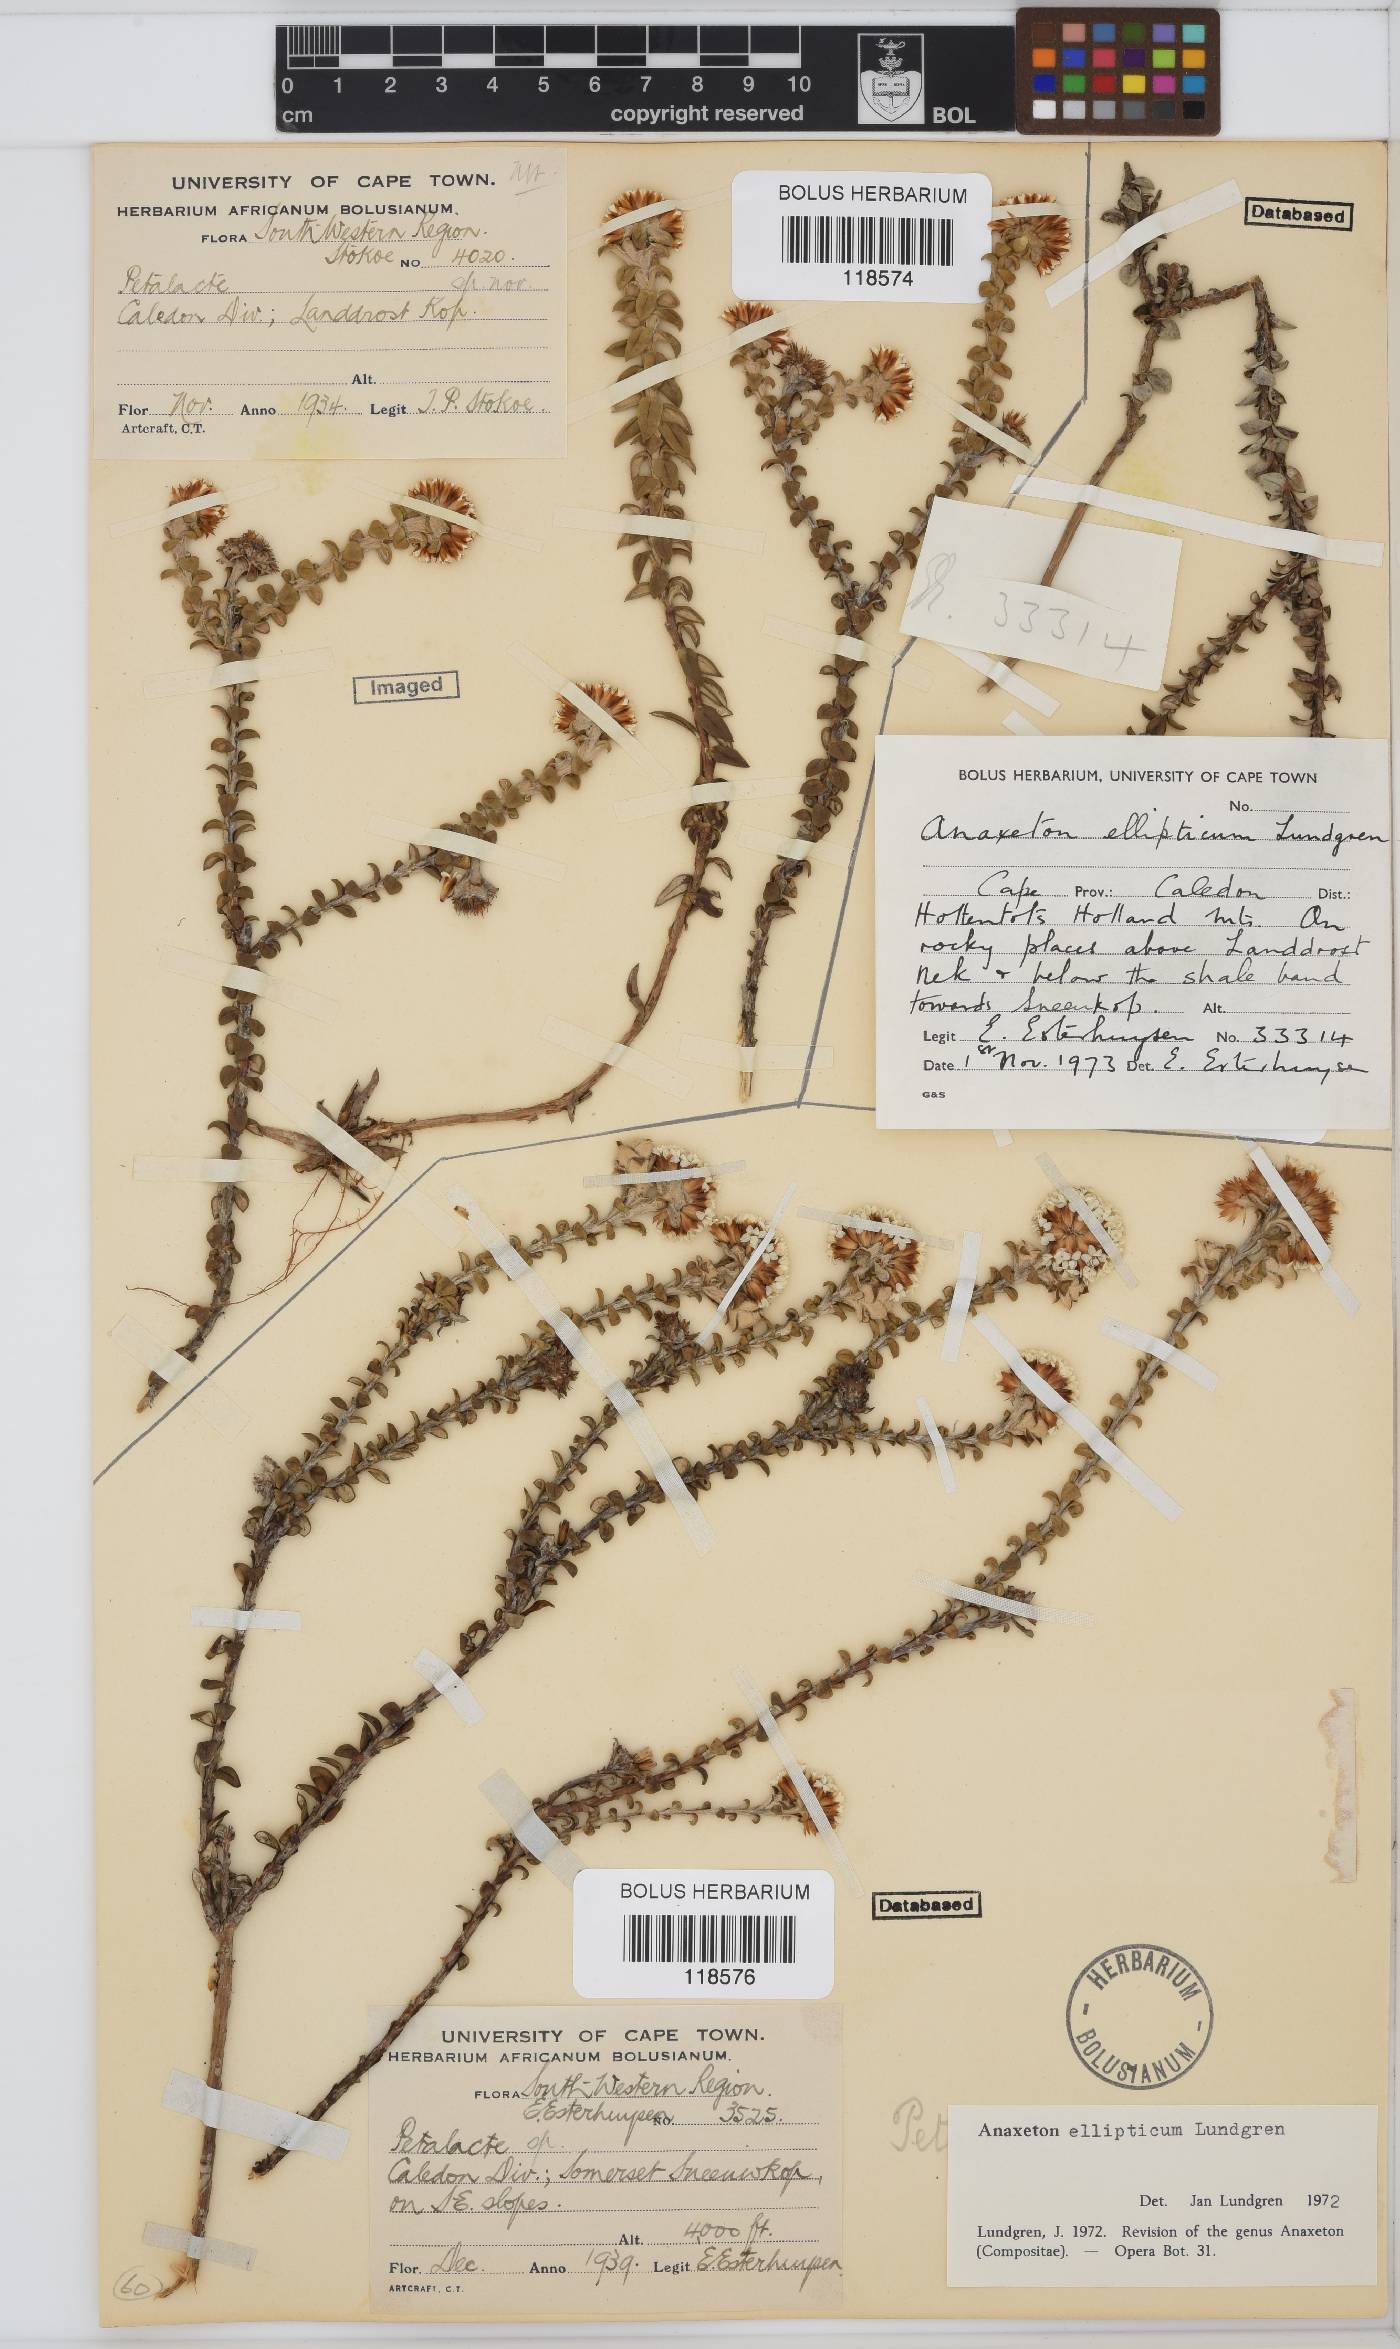 0 1 2 3 4 5 6 7 8 9 10
cm
copyright reserved
BOL
UNIVERSITY OF CAPE TOWN.
HERBARIUM AFRICANUM BOLUSIANUM.
FLORA South Western Region.
Stokoe NO 4020.
Petalacte sp. nov
Caledon Div.; Landdrost Kop.
Alt.
Flor Nov. Anno 1934. Legit T. P. Stokoe.
Artcraft, C.T.
BOLUS HERBARIUM
118574
Databased
Imaged
33314
BOLUS HERBARIUM, UNIVERSITY OF CAPE TOWN
No.
Anaxeton ellipticum Lundgren
Cape Prov.: Caledon Dist.:
Hottentots Holland Mts. On
rocky places above Landdrost
Nek & below the shale band
towards Sneeukop. Alt.
Legit E. Esterhuysen No. 33314
Date 1st Nov. 1973 Det. E. Esterhuysen
G&S
BOLUS HERBARIUM
118576
Databased
HERBARIUM
BOLUSIANUM
UNIVERSITY OF CAPE TOWN.
HERBARIUM AFRICANUM BOLUSIANUM.
FLORA South-Western Region.
E. Esterhuysen NO. 3525.
Petalacte sp.
Caledon Div.; Somerset Sneeuwkop,
on S.E. slopes.
Alt. 4000 ft.
Flor. Dec. Anno 1939. Legit E. Esterhuysen.
ARTCRAFT, C.T.
60
Pet
Anaxeton ellipticum Lundgren
Det. Jan Lundgren 1972
Lundgren, J. 1972. Revision of the genus Anaxeton
(Compositae). — Opera Bot. 31.